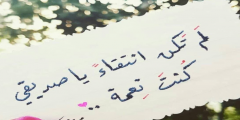 لَم تَكُن انتقاءً يا صديقي
كُنتَ نِعمة ..